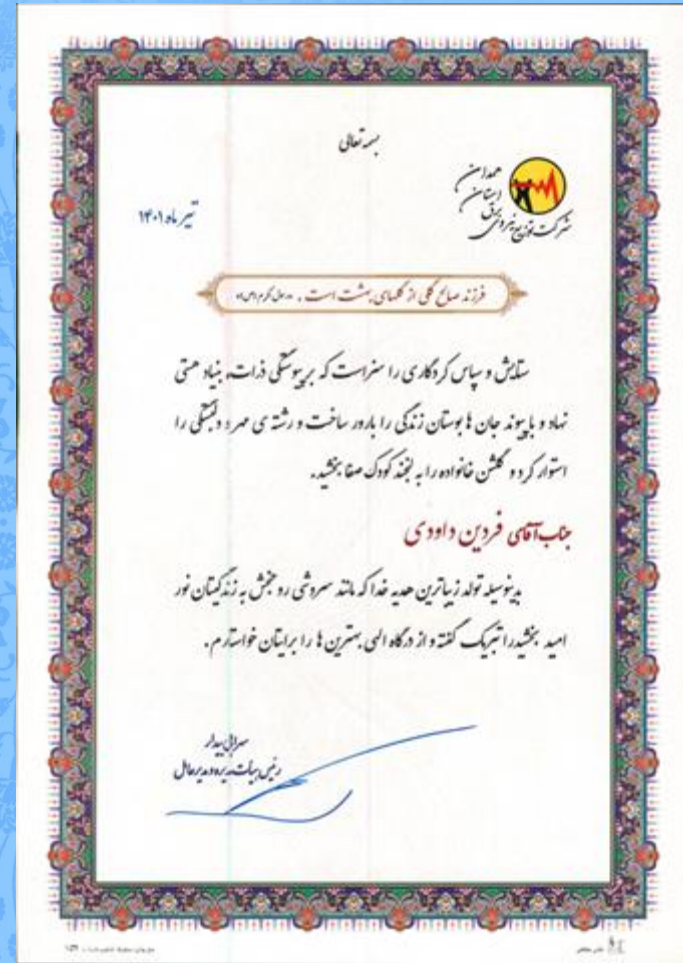 بسمه تعالی
شرکت توزیع نیروی برق
استان
همدان
تیر ماه ۱۴۰۱
فرزند صالح گلی از گلهای بهشت است .
ستایش و سپاس کردگاری را سزاست که بر پیوستگی ذرات، بنیاد هستی
نهاد و با پیوند جان ها بوستان زندگی را بارور ساخت و رشته ی مهر و دلبستگی را
استوار کرد و گلشن خانواده را به لبخند کودک صفا بخشید.
جناب آقای فردین داودی
بدینوسیله تولد زیباترین هدیه خدا که مانند سروشی روحبخش به زندگیتان نور
امید بخشید را تبریک گفته و از درگاه الهی بهترین ها را برایتان خواستارم.
رئیس هیأت مدیره و مدیرعامل